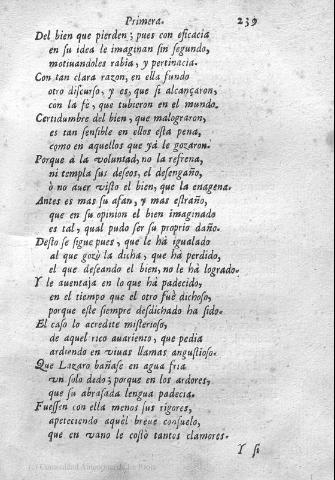 Primera. 239
Del bien que pierden; pues con eficacia
en su idea le imaginan sin segundo,
motiuandoles rabia, y pertinacia.
Con tan clara razon, en ella fundo
otro discurso, y es, que si alcançaron,
con la fè, que tubieron en el mundo.
Certidumbre del bien, que malograron,
es tan sensible en ellos esta pena,
como en aquellos que yà le gozaron.
Porque à la voluntad, no la refrena,
ni templa sus deseos, el desengaño,
ò no auer visto el bien, que la enagena.
Antes es mas su afan, y mas estraño,
que en su opinion el bien imaginado
es tal, qual pudo ser su proprio daño.
Desto se sigue pues, que le hà igualado
al que gozò la dicha, que hà perdido,
el que deseando el bien, no le hà logrado.
Y le auentaja en lo que hà padecido,
en el tiempo que el otro fuè dichoso,
porque este siempre desdichado ha sido.
El caso lo acredite misterioso,
de aquel rico auariento, que pedia
ardiendo en viuas llamas angustioso.
Que Lazaro bañase en agua fria
vn solo dedo; porque en los ardores,
que su abrasada lengua padecia.
Fuessen con ella menos sus rigores,
apeteciendo aquèl breue consuelo,
que en vano le costò tantos clamores.
Y si
(c) Comunidad Autónoma de La Rioja